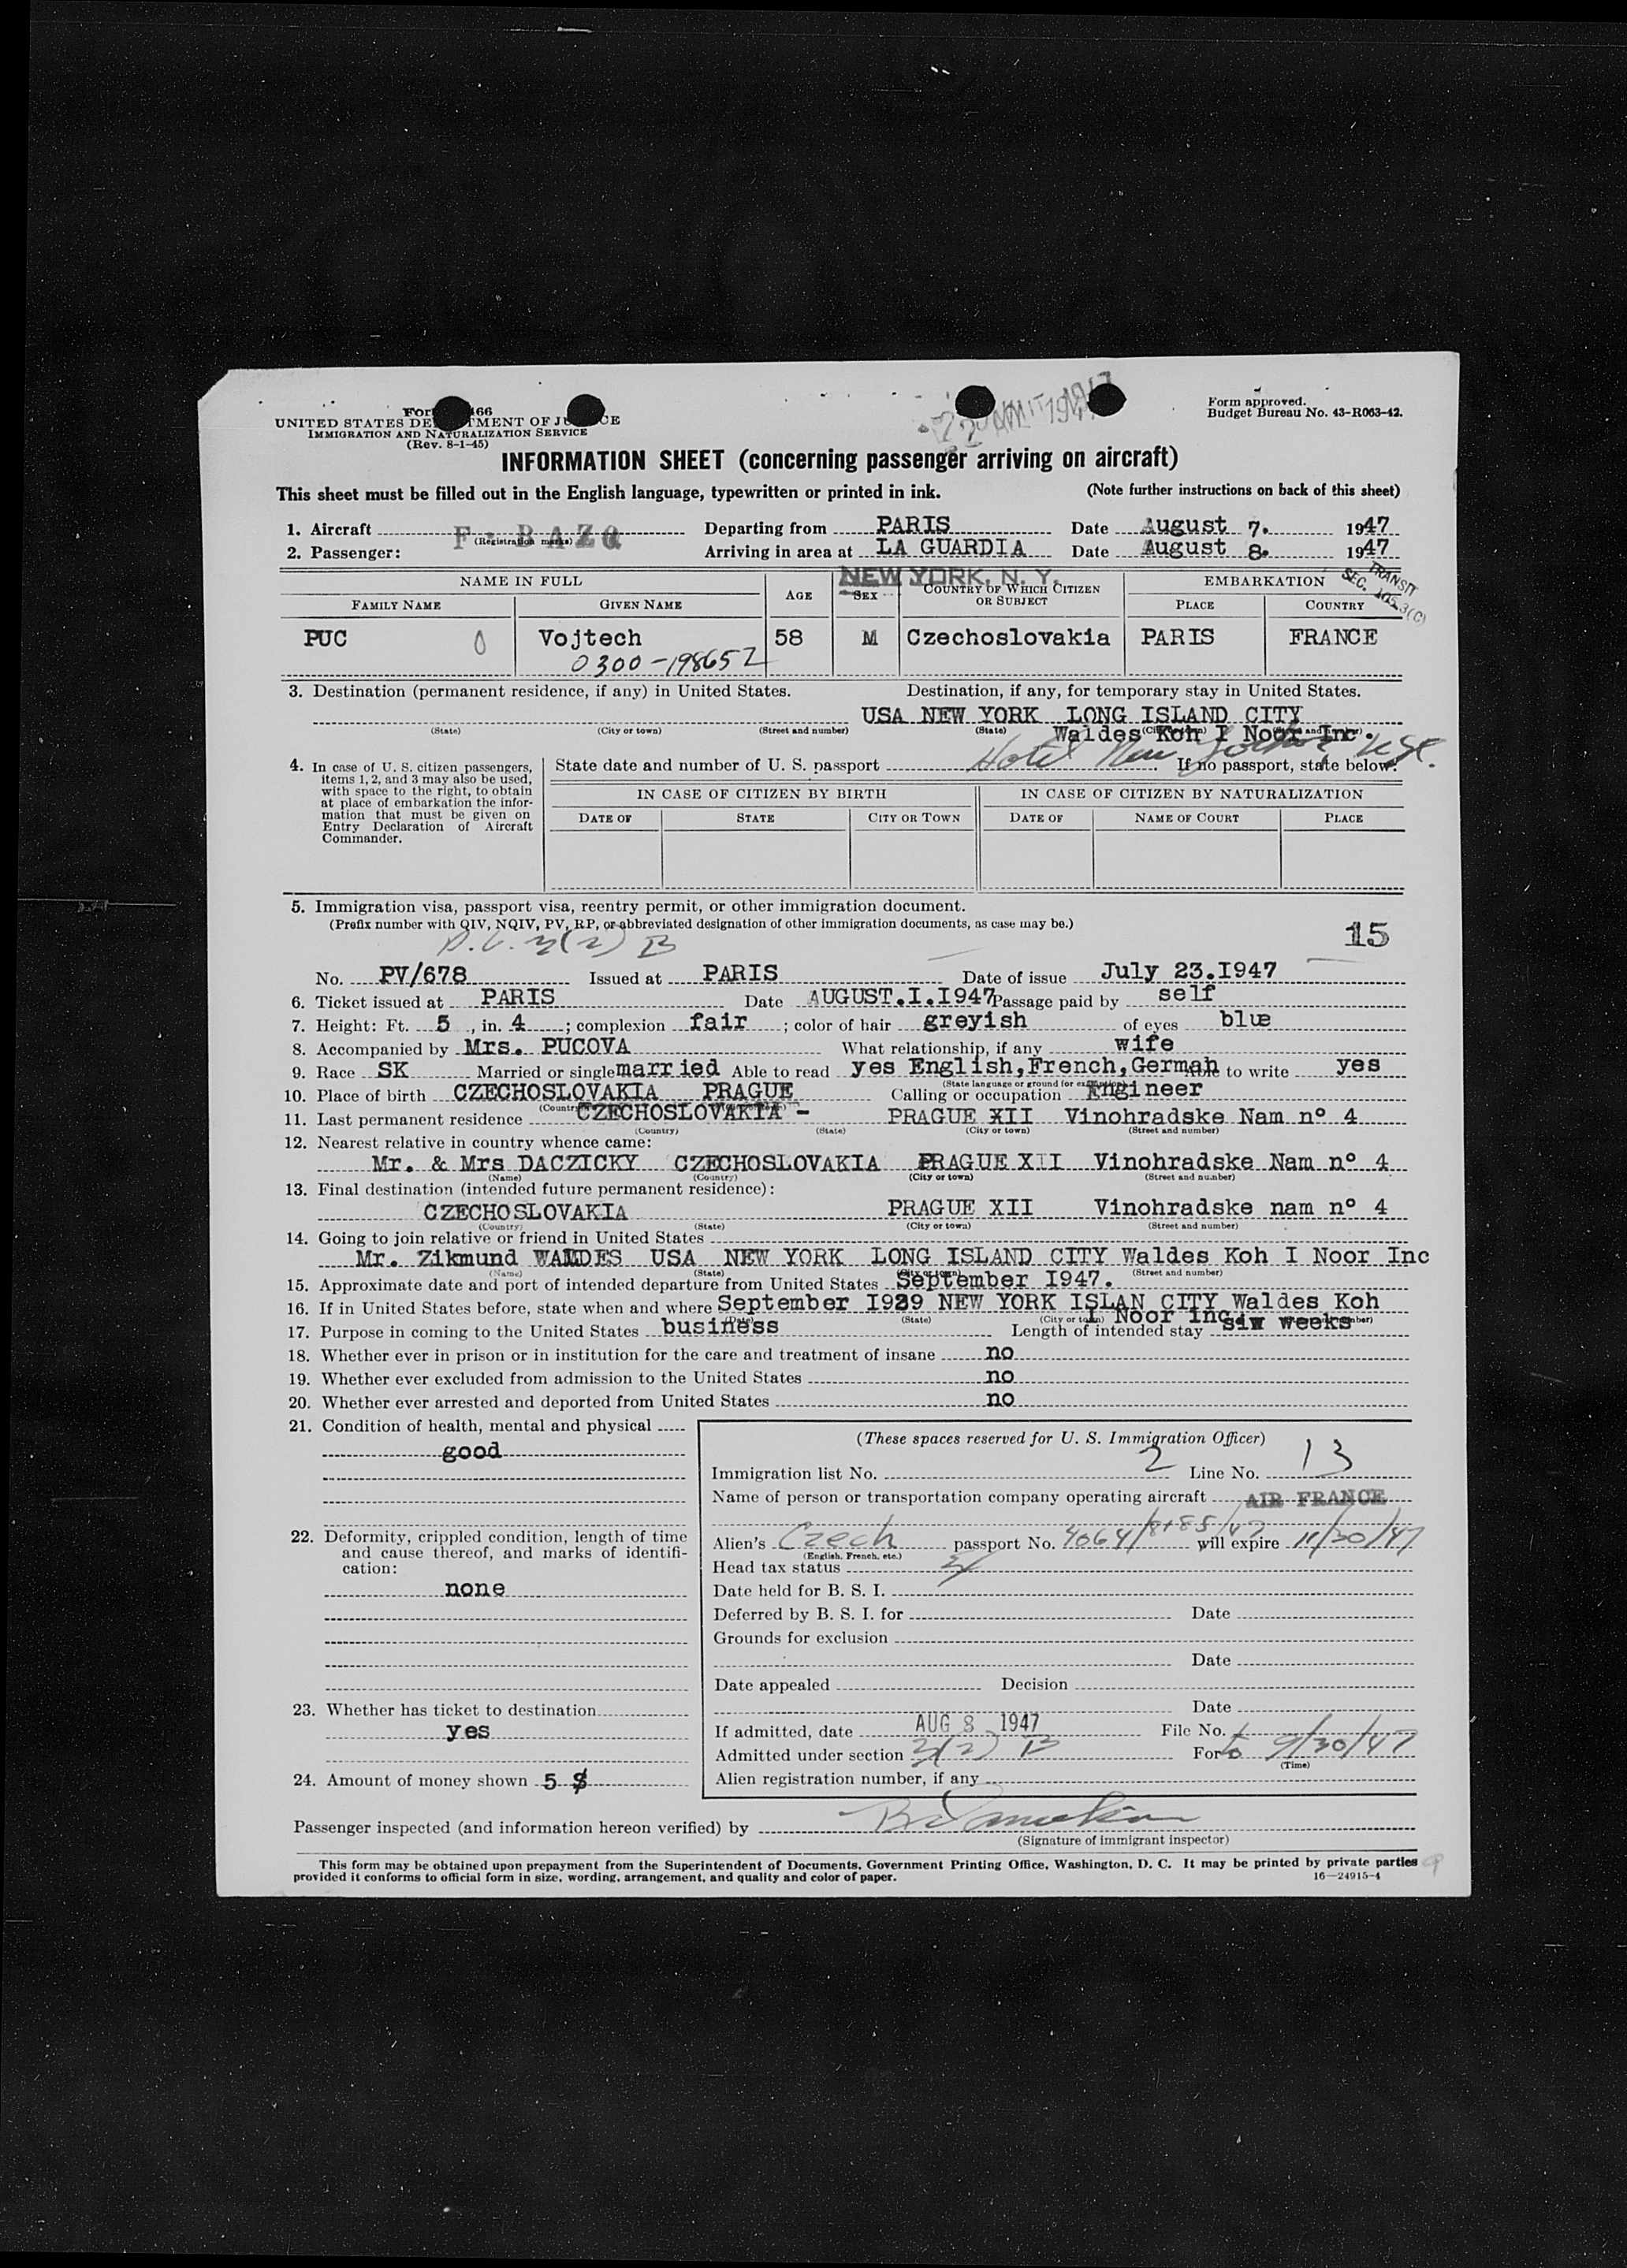 Form 466
UNITED STATES DEPARTMENT OF JUSTICE
IMMIGRATION AND NATURALIZATION SERVICE
(Rev. 8-1-45)
Form approved.
Budget Bureau No. 43-R063-42.
INFORMATION SHEET (concerning passenger arriving on aircraft)
This sheet must be filled out in the English language, typewritten or printed in ink. (Note further instructions on back of this sheet)
1. Aircraft F-BAZQ (Registration marks) Departing from PARIS Date August 7. 1947
2. Passenger: Arriving in area at LA GUARDIA Date August 8. 1947
NEW YORK, N. Y.
TRANSIT
SEC. 105.3(C)
NAME IN FULL AGE SEX COUNTRY OF WHICH CITIZEN OR SUBJECT EMBARKATION
FAMILY NAME GIVEN NAME PLACE COUNTRY
PUC Vojtech 58 M Czechoslovakia PARIS FRANCE
0300-198652
3. Destination (permanent residence, if any) in United States. Destination, if any, for temporary stay in United States.
USA NEW YORK LONG ISLAND CITY
(State) (City or town) (Street and number) (State) (City or town) (Street and number)
Waldes Koh I Noor Inc.
Hotel New Yorker
4. In case of U. S. citizen passengers, items 1, 2, and 3 may also be used, with space to the right, to obtain at place of embarkation the information that must be given on Entry Declaration of Aircraft Commander.
State date and number of U. S. passport If no passport, state below:
IN CASE OF CITIZEN BY BIRTH IN CASE OF CITIZEN BY NATURALIZATION
DATE OF STATE CITY OR TOWN DATE OF NAME OF COURT PLACE
5. Immigration visa, passport visa, reentry permit, or other immigration document.
(Prefix number with QIV, NQIV, PV, RP, or abbreviated designation of other immigration documents, as case may be.)
3(2) B
15
No. PV/678 Issued at PARIS Date of issue July 23.I947
6. Ticket issued at PARIS Date AUGUST.I.I947 Passage paid by self
7. Height: Ft. 5, in. 4; complexion fair; color of hair greyish of eyes blue
8. Accompanied by Mrs. PUCOVA What relationship, if any wife
9. Race SK Married or single married Able to read yes English,French,German Able to write yes
(State language or ground for exemption)
10. Place of birth CZECHOSLOVAKIA PRAGUE Calling or occupation Engineer
11. Last permanent residence CZECHOSLOVAKIA - PRAGUE XII Vinohradske Nam n° 4
(Country) (State) (City or town) (Street and number)
12. Nearest relative in country whence came:
Mr. & Mrs DACZICKY CZECHOSLOVAKIA PRAGUE XII Vinohradske Nam n° 4
(Name) (Country) (City or town) (Street and number)
13. Final destination (intended future permanent residence):
CZECHOSLOVAKIA PRAGUE XII Vinohradske nam n° 4
(Country) (State) (City or town) (Street and number)
14. Going to join relative or friend in United States
Mr. Zikmund WALDES USA NEW YORK LONG ISLAND CITY Waldes Koh I Noor Inc
(Name) (State) (City or town) (Street and number)
15. Approximate date and port of intended departure from United States September I947.
16. If in United States before, state when and where September I939 NEW YORK ISLAN CITY Waldes Koh
(Date) (State) (City or town) I Noor Inc.
17. Purpose in coming to the United States business Length of intended stay six weeks
18. Whether ever in prison or in institution for the care and treatment of insane no
19. Whether ever excluded from admission to the United States no
20. Whether ever arrested and deported from United States no
21. Condition of health, mental and physical
good
22. Deformity, crippled condition, length of time and cause thereof, and marks of identification:
none
23. Whether has ticket to destination
yes
24. Amount of money shown 5 $
(These spaces reserved for U. S. Immigration Officer)
Immigration list No. 2 Line No. 13
Name of person or transportation company operating aircraft AIR FRANCE
Alien's Czech passport No. 4064/8185/47 will expire 11/30/47
(English, French, etc.)
Head tax status
Date held for B. S. I.
Deferred by B. S. I. for Date
Grounds for exclusion
Date
Date appealed Decision
Date
If admitted, date AUG 8 1947 File No.
Admitted under section 3(2) B For to 9/30/47
(Time)
Alien registration number, if any
Passenger inspected (and information hereon verified) by
(Signature of immigrant inspector)
This form may be obtained upon prepayment from the Superintendent of Documents, Government Printing Office, Washington, D. C. It may be printed by private parties
provided it conforms to official form in size, wording, arrangement, and quality and color of paper. 16—24915-4